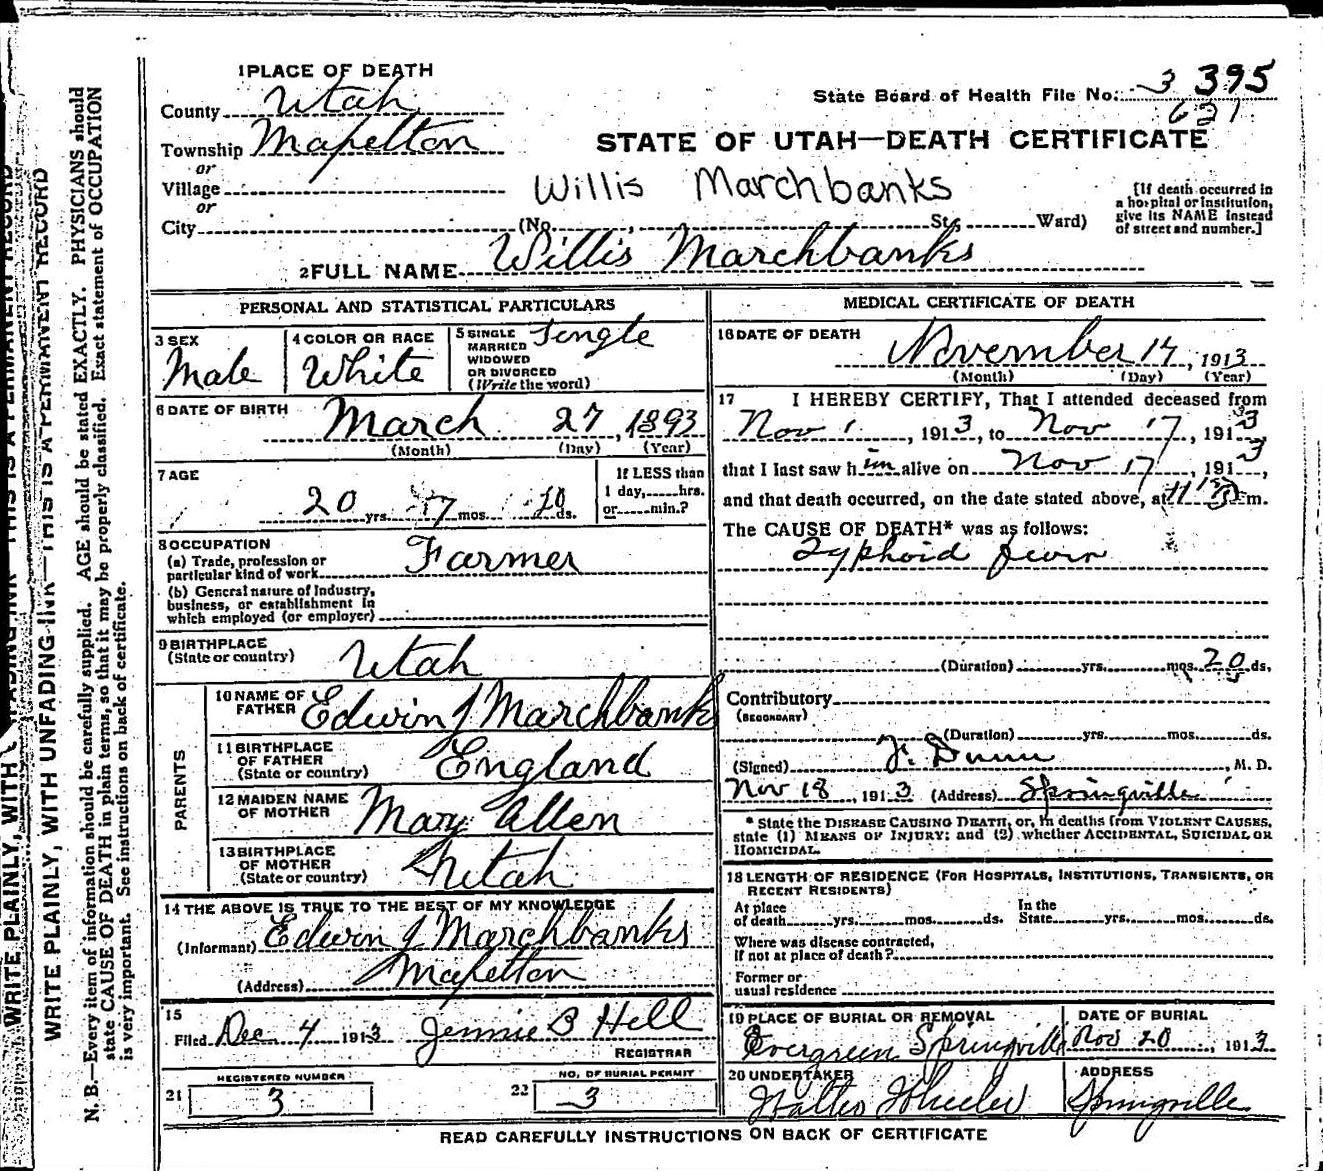 1 PLACE OF DEATH
County Utah
State Board of Health File No. 3 395
621
Township Mapelton
STATE OF UTAH—DEATH CERTIFICATE
or
Village
Willis Marchbanks
or
City (No. , St., Ward)
[If death occurred in
a hospital or institution,
give its NAME instead
of street and number.]
2 FULL NAME Willis Marchbanks
PERSONAL AND STATISTICAL PARTICULARS
3 SEX
Male
4 COLOR OR RACE
White
5 SINGLE
MARRIED
WIDOWED
OR DIVORCED
(Write the word)
6 DATE OF BIRTH
March 27, 1893
(Month) (Day) (Year)
7 AGE
20 yrs. 7 mos. ds.
If LESS than
1 day,......hrs.
or......min.?
8 OCCUPATION
(a) Trade, profession or
particular kind of work Farmer
(b) General nature of Industry,
business, or establishment in
which employed (or employer)
9 BIRTHPLACE
(State or country) Utah
PARENTS
10 NAME OF
FATHER Edwin J Marchbanks
11 BIRTHPLACE
OF FATHER
(State or country) England
12 MAIDEN NAME
OF MOTHER Mary Allen
13 BIRTHPLACE
OF MOTHER
(State or country) Utah
14 THE ABOVE IS TRUE TO THE BEST OF MY KNOWLEDGE
(Informant) Edwin J Marchbanks
(Address) Mapelton
15
Filed Dec 4 1913 Jennie B Hill
REGISTRAR
REGISTERED NUMBER
21 3
NO. OF BURIAL PERMIT
22 3
MEDICAL CERTIFICATE OF DEATH
16 DATE OF DEATH
November 17, 1913
(Month) (Day) (Year)
17 I HEREBY CERTIFY, That I attended deceased from
Nov 1, 1913, to Nov 17, 1913,
that I last saw him alive on Nov 17, 1913,
and that death occurred, on the date stated above, at 11 m.
The CAUSE OF DEATH* was as follows:
Typhoid fever
(Duration) yrs. mos. 20 ds.
Contributory
(SECONDARY)
(Duration) yrs. mos. ds.
(Signed) F. Dunn, M. D.
Nov 18, 1913 (Address) Springville
* State the DISEASE CAUSING DEATH, or, in deaths from VIOLENT CAUSES,
state (1) MEANS OF INJURY; and (2) whether ACCIDENTAL, SUICIDAL OR
HOMICIDAL.
18 LENGTH OF RESIDENCE (FOR HOSPITALS, INSTITUTIONS, TRANSIENTS, OR
RECENT RESIDENTS)
At place
of death yrs. mos. ds.
In the
State yrs. mos. ds.
Where was disease contracted,
if not at place of death?
Former or
usual residence
19 PLACE OF BURIAL OR REMOVAL
Evergreen Springville
DATE OF BURIAL
Nov 20, 1913
20 UNDERTAKER
Walter Wheeler
ADDRESS
Springville
READ CAREFULLY INSTRUCTIONS ON BACK OF CERTIFICATE
WRITE PLAINLY, WITH UNFADING INK—THIS IS A PERMANENT RECORD
WRITE PLAINLY, WITH UNFADING INK—THIS IS A PERMANENT RECORD
N. B.—Every item of information should be carefully supplied. AGE should be stated EXACTLY. PHYSICIANS should
state CAUSE OF DEATH in plain terms, so that it may be properly classified. Exact statement of OCCUPATION
is very important. See instructions on back of certificate.